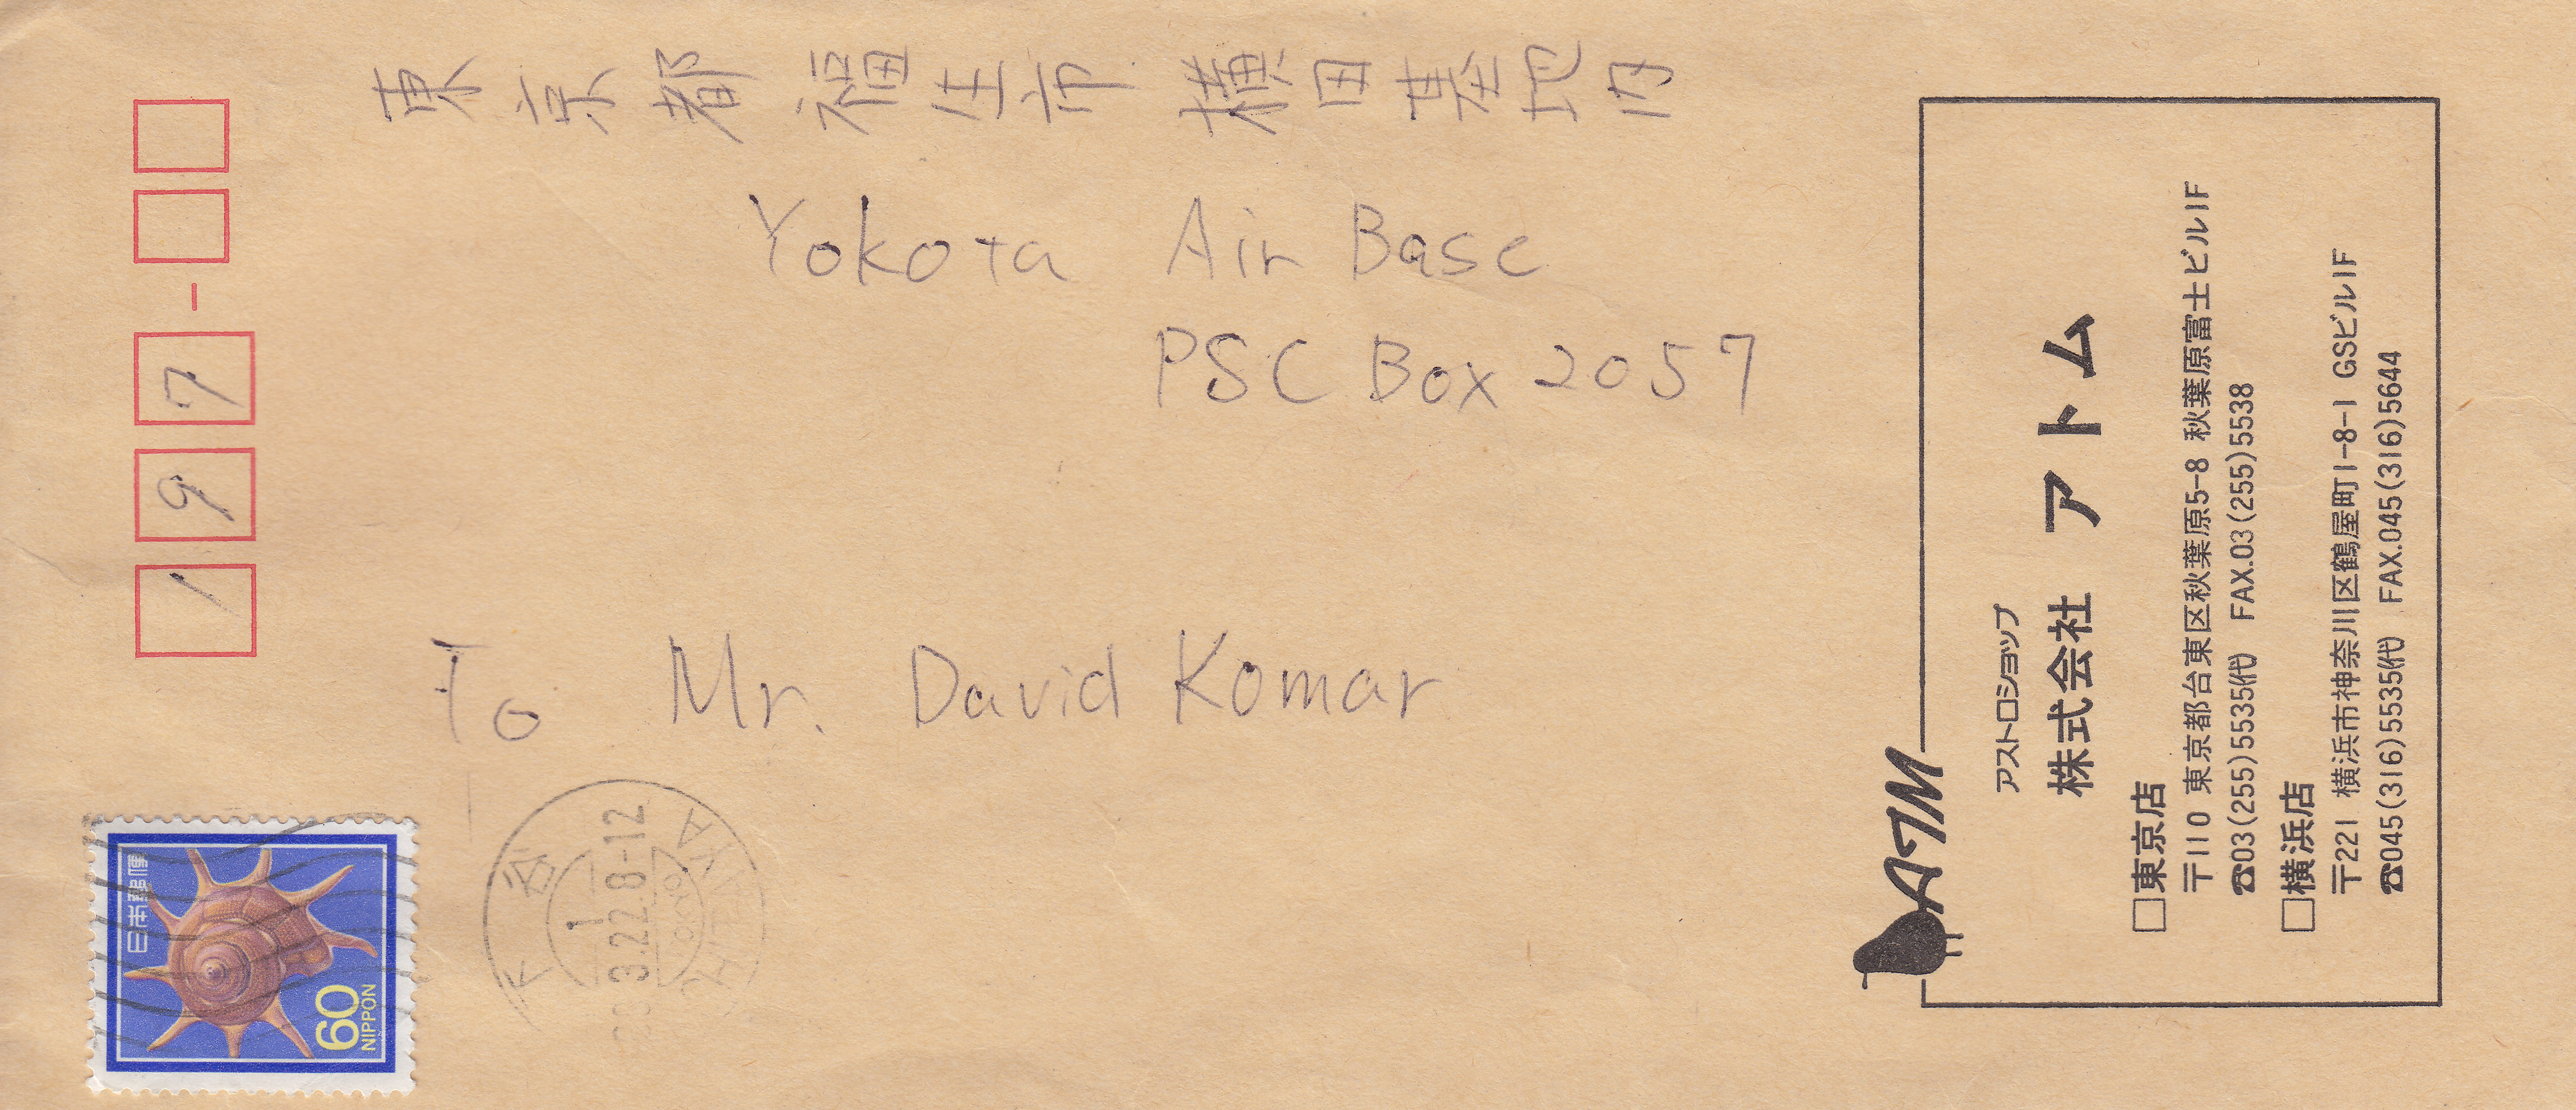 197
東京都福庄市 横田基地内
Yokota Air Base
PSC Box 2057
To Mr. David Komar
日本郵便
60
NIPPON
下谷
1
3.22.8-12
SHITAYA
TOKYO
ATM
アストロショップ
株式会社 アトム
□東京店
〒110 東京都台東区秋葉原5-8 秋葉原富士ビル1F
☎03(255)5535(代) FAX.03(255)5538
□横浜店
〒221 横浜市神奈川区鶴屋町1-8-1 GSビル1F
☎045(316)5535(代) FAX.045(316)5644